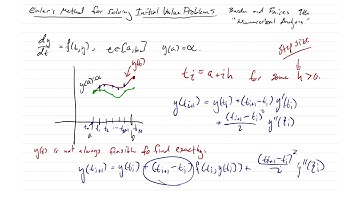 Euler's Method for Solving Initial Value Problems
Burden and Faires 9Ed
"Numerical Analysis"
dy/dt = f(t,y), t∈[a,b] y(a)=α.
step size
y(t)
y(a)=α
t_i = a+ih for some h>0.
y(t_{i+1}) = y(t_i)+(t_{i+1}-t_i) y'(t_i)
+ (t_{i+1}-t_i)²/2 y''(ξ_i)
t_0 t_1 t_2
a b
y(t) is not always feasible to find exactly.
y(t_{i+1}) = y(t_i) + (t_{i+1}-t_i) f(t_i, y(t_i)) + (t_{i+1}-t_i)²/2 y''(ξ_i)